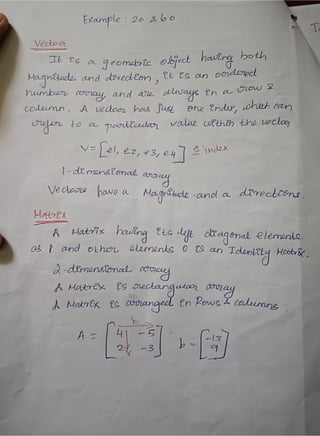 Example : 20 260
Vector
It is a geometric object having both
Magnitude and direction, it is an ordered
number array, and are always in a row &
column. A vector has just one index, which can
refer to a particular value within the vector
V = [e1, e2, e3, e4] index
1-dimensional array
Vectors have a Magnitude and a directions.
Matrix
A Matrix having its left diagonal elements
as 1 and other elements 0 is an Identity Matrix.
2-dimensional array
A Matrix is rectangular array
A Matrix is arranged in Rows & columns
A = [4 -5
2 -3] b = [-13
9]